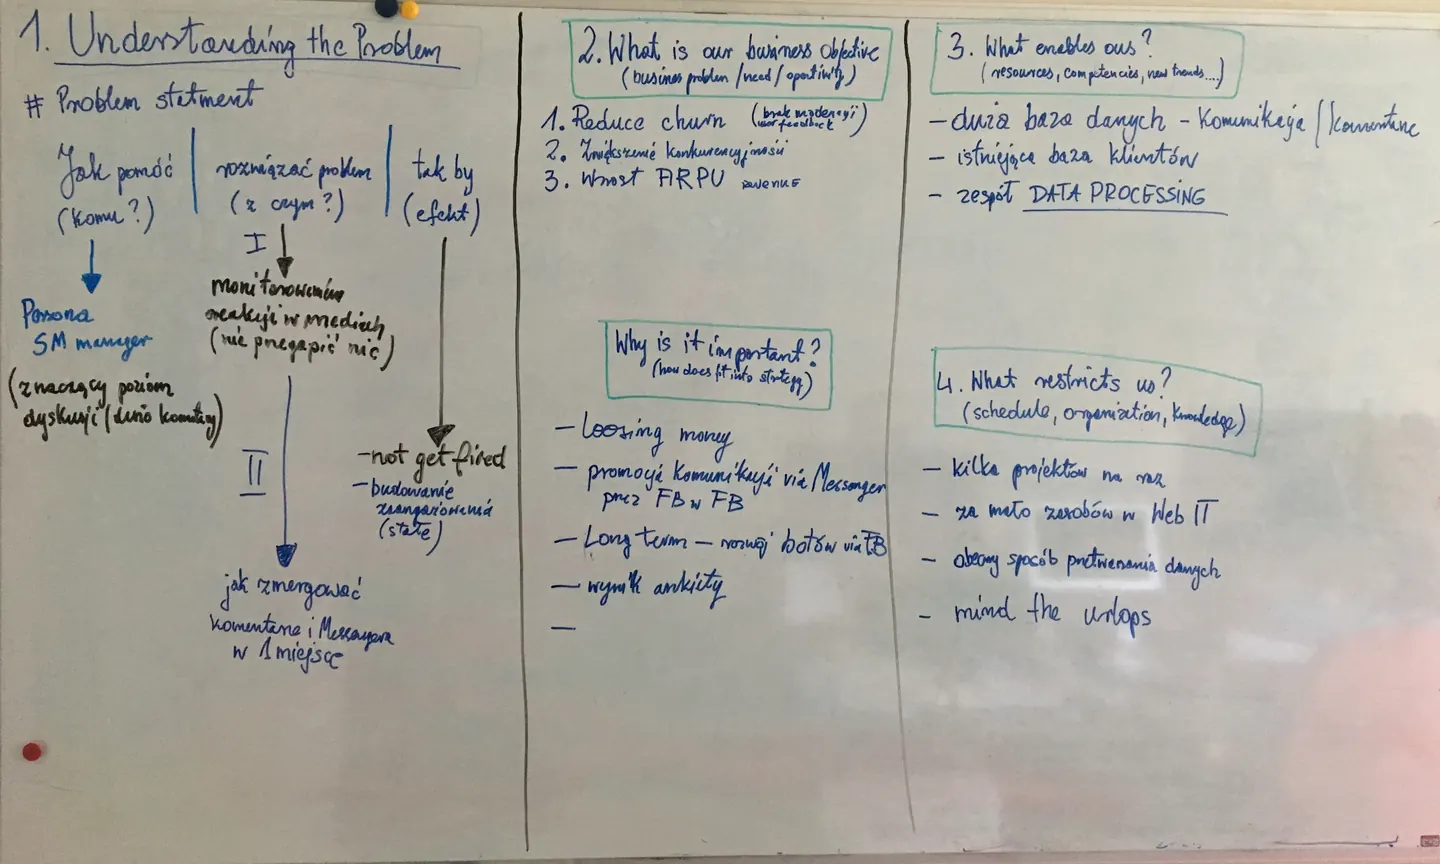 1. Understanding the Problem
# Problem statment
Jak pomóc
(komu?)
rozwiązać problem
(z czym?)
tak by
(efekt)
Persona
SM manager
(znaczący poziom
dyskusji/dużo komentarzy)
I
monitorowaniem
reakcji w mediach
(nie przegapić nic)
II
jak zmergować
komentarze i Messengera
w 1 miejsce
-not get fired
- budowanie
zaangażowania
(stałe)
2. What is our business objective
(busines problem /need/ oportinity)
1. Reduce churn (brak moderacji
feedback)
2. Zwiększenie konkurencyjności
3. Wzrost ARPU revenue
Why is it important?
(how does fit into strategy)
- Loosing money
- promocja komunikacji via Messenger
przez FB w FB
- Long term - rozwój botów via FB
- wynik ankiety
-
3. What enables ous?
(resources, competencies, new trends....)
- duża baza danych - Komunikacja/komentarze
- istniejąca baza klientów
- zespół DATA PROCESSING
4. What restricts us?
(schedule, organization, knowledge)
- kilka projektów na raz
- za mało zasobów w Web IT
- obecny sposób przetwarzania danych
- mind the urlops